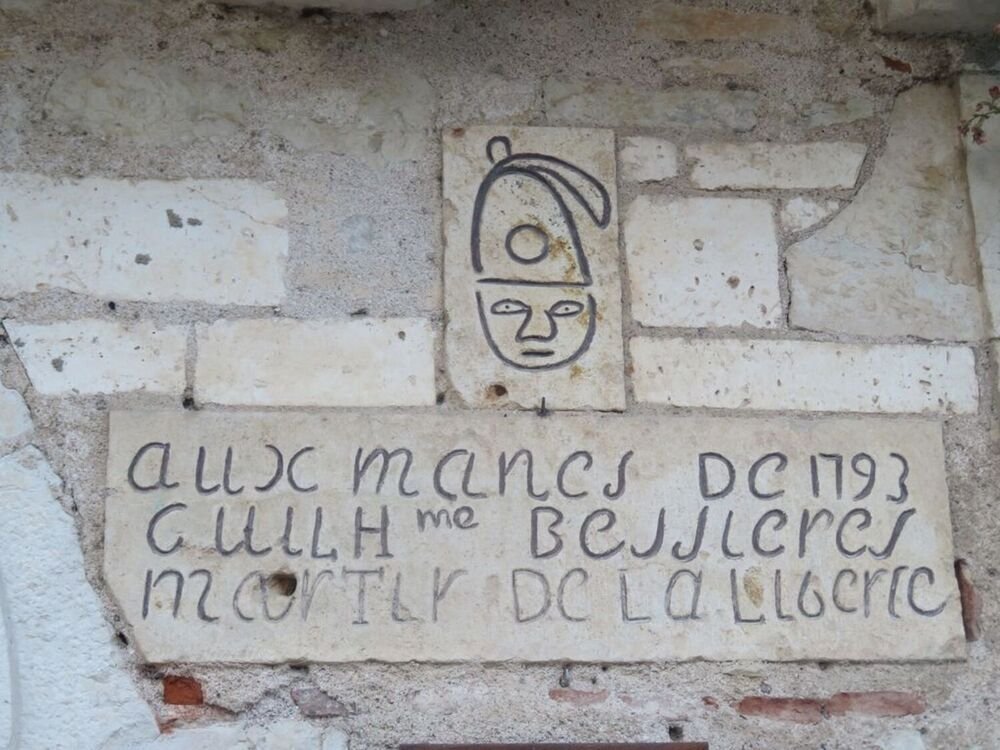 aux manes De 1793
GUILHme Bessieres
marTir De La Liberte